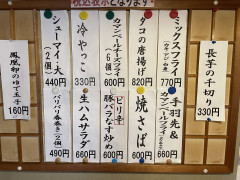 税込表示となります。
ミックスフライ
770円
タコの唐揚げ
820円
カマンベールチーズフライ
(6個)
600円
冷やっこ
330円
シューマイ・大
(2個)
440円
手羽先&
カマンベールフライ
660円
焼さば
660円
ピリ辛
豚バラなす炒め
600円
生ハムサラダ
660円
パリパリ春巻き(2個)
490円
長芋の千切り
330円
鳳凰卵のゆで玉子
160円